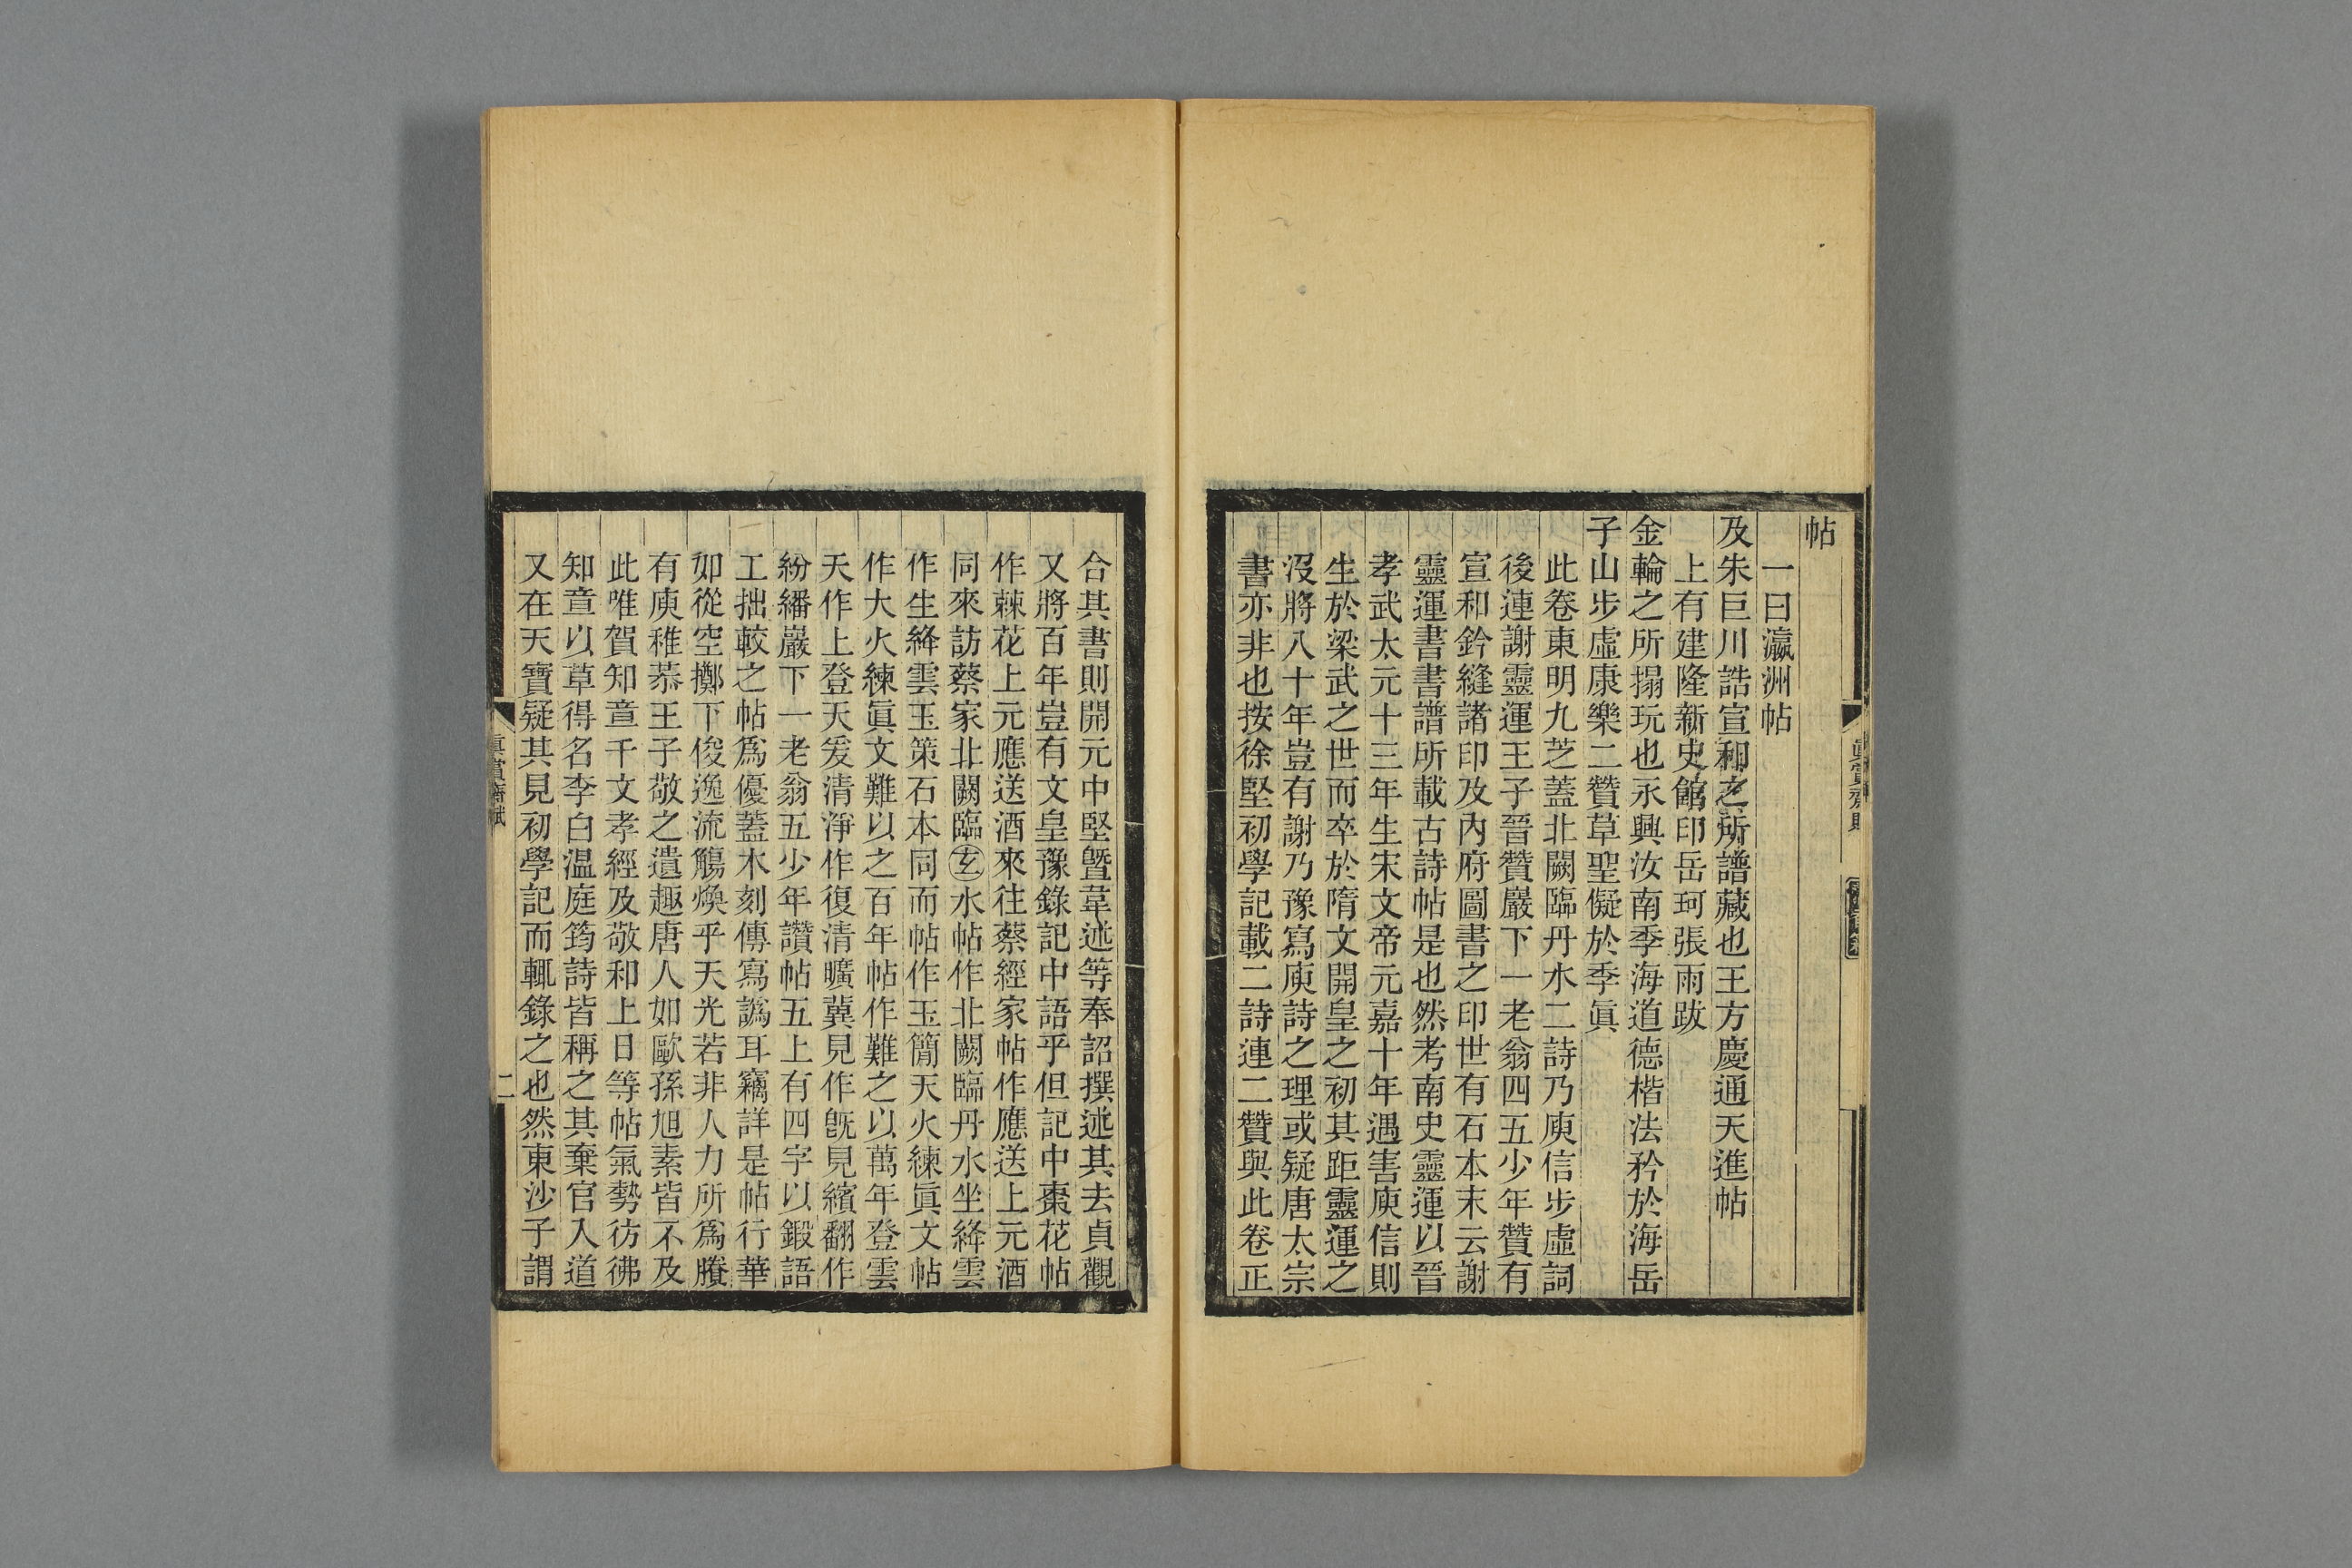 帖
一曰瀛洲帖
及朱巨川誥宣和之所譜藏也王方慶通天進帖
上有建隆新史館印岳珂張雨跋
金輪之所搨玩也永興汝南季海道德楷法矜於海岳
子山步虛康樂二贊草聖儗於季眞
此卷東明九芝蓋北闕臨丹水二詩乃庾信步虛詞
後連謝靈運王子晉贊巖下一老翁四五少年贊有
宣和鈐縫諸印及內府圖書之印世有石本末云謝
靈運書書譜所載古詩帖是也然考南史靈運以晉
孝武太元十三年生宋文帝元嘉十年遇害庾信則
生於梁武之世而卒於隋文開皇之初其距靈運之
沒將八十年豈有謝乃豫寫庾詩之理或疑唐太宗
書亦非也按徐堅初學記載二詩連二贊與此卷正
合其書則開元中堅曁韋述等奉詔撰述其去貞觀
又將百年豈有文皇豫錄記中語乎但記中棗花帖
作棘花上元應送酒來往蔡經家帖作應送上元酒
同來訪蔡家北闕臨玄水帖作北闕臨丹水坐絳雲
作生絳雲玉策石本同而帖作玉簡天火練眞文帖
作大火練眞文難以之百年帖作難之以萬年登雲
天作上登天爰清淨作復清曠冀見作旣見繽翻作
紛繙巖下一老翁五少年讚帖五上有四字以鍛語
工拙較之帖爲優蓋木刻傳寫譌耳竊詳是帖行華
如從空擲下俊逸流觴煥乎天光若非人力所爲賸
有庾稚恭王子敬之遺趣唐人如歐孫旭素皆不及
此唯賀知章千文孝經及敬和上日等帖氣勢彷彿
知章以草得名李白温庭筠詩皆稱之其棄官入道
又在天寶疑其見初學記而輒錄之也然東沙子謂
眞賞齋賦
二